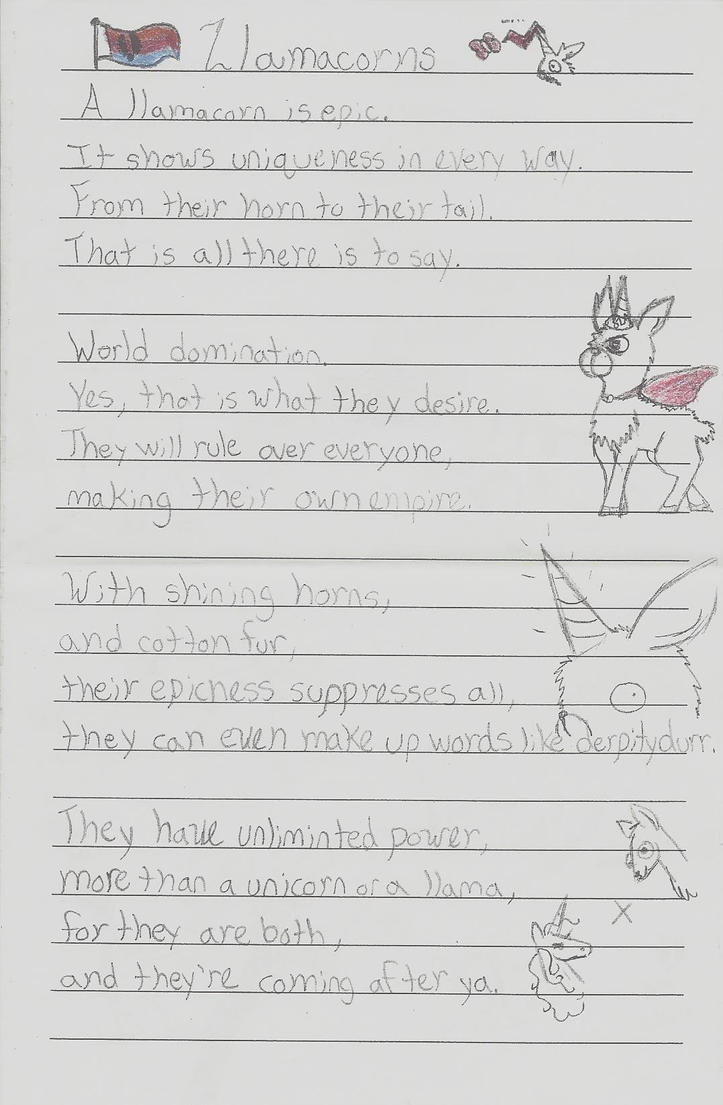 Llamacorns
A llamacorn is epic.
It shows uniqueness in every way.
From their horn to their tail.
That is all there is to say.
World domination.
Yes, that is what they desire.
They will rule over everyone,
making their own empire.
With shining horns,
and cotton fur,
their epicness suppresses all,
they can even make up words like derpitydurr.
They have unliminted power,
more than a unicorn or a llama,
for they are both,
and they're coming after ya.
X